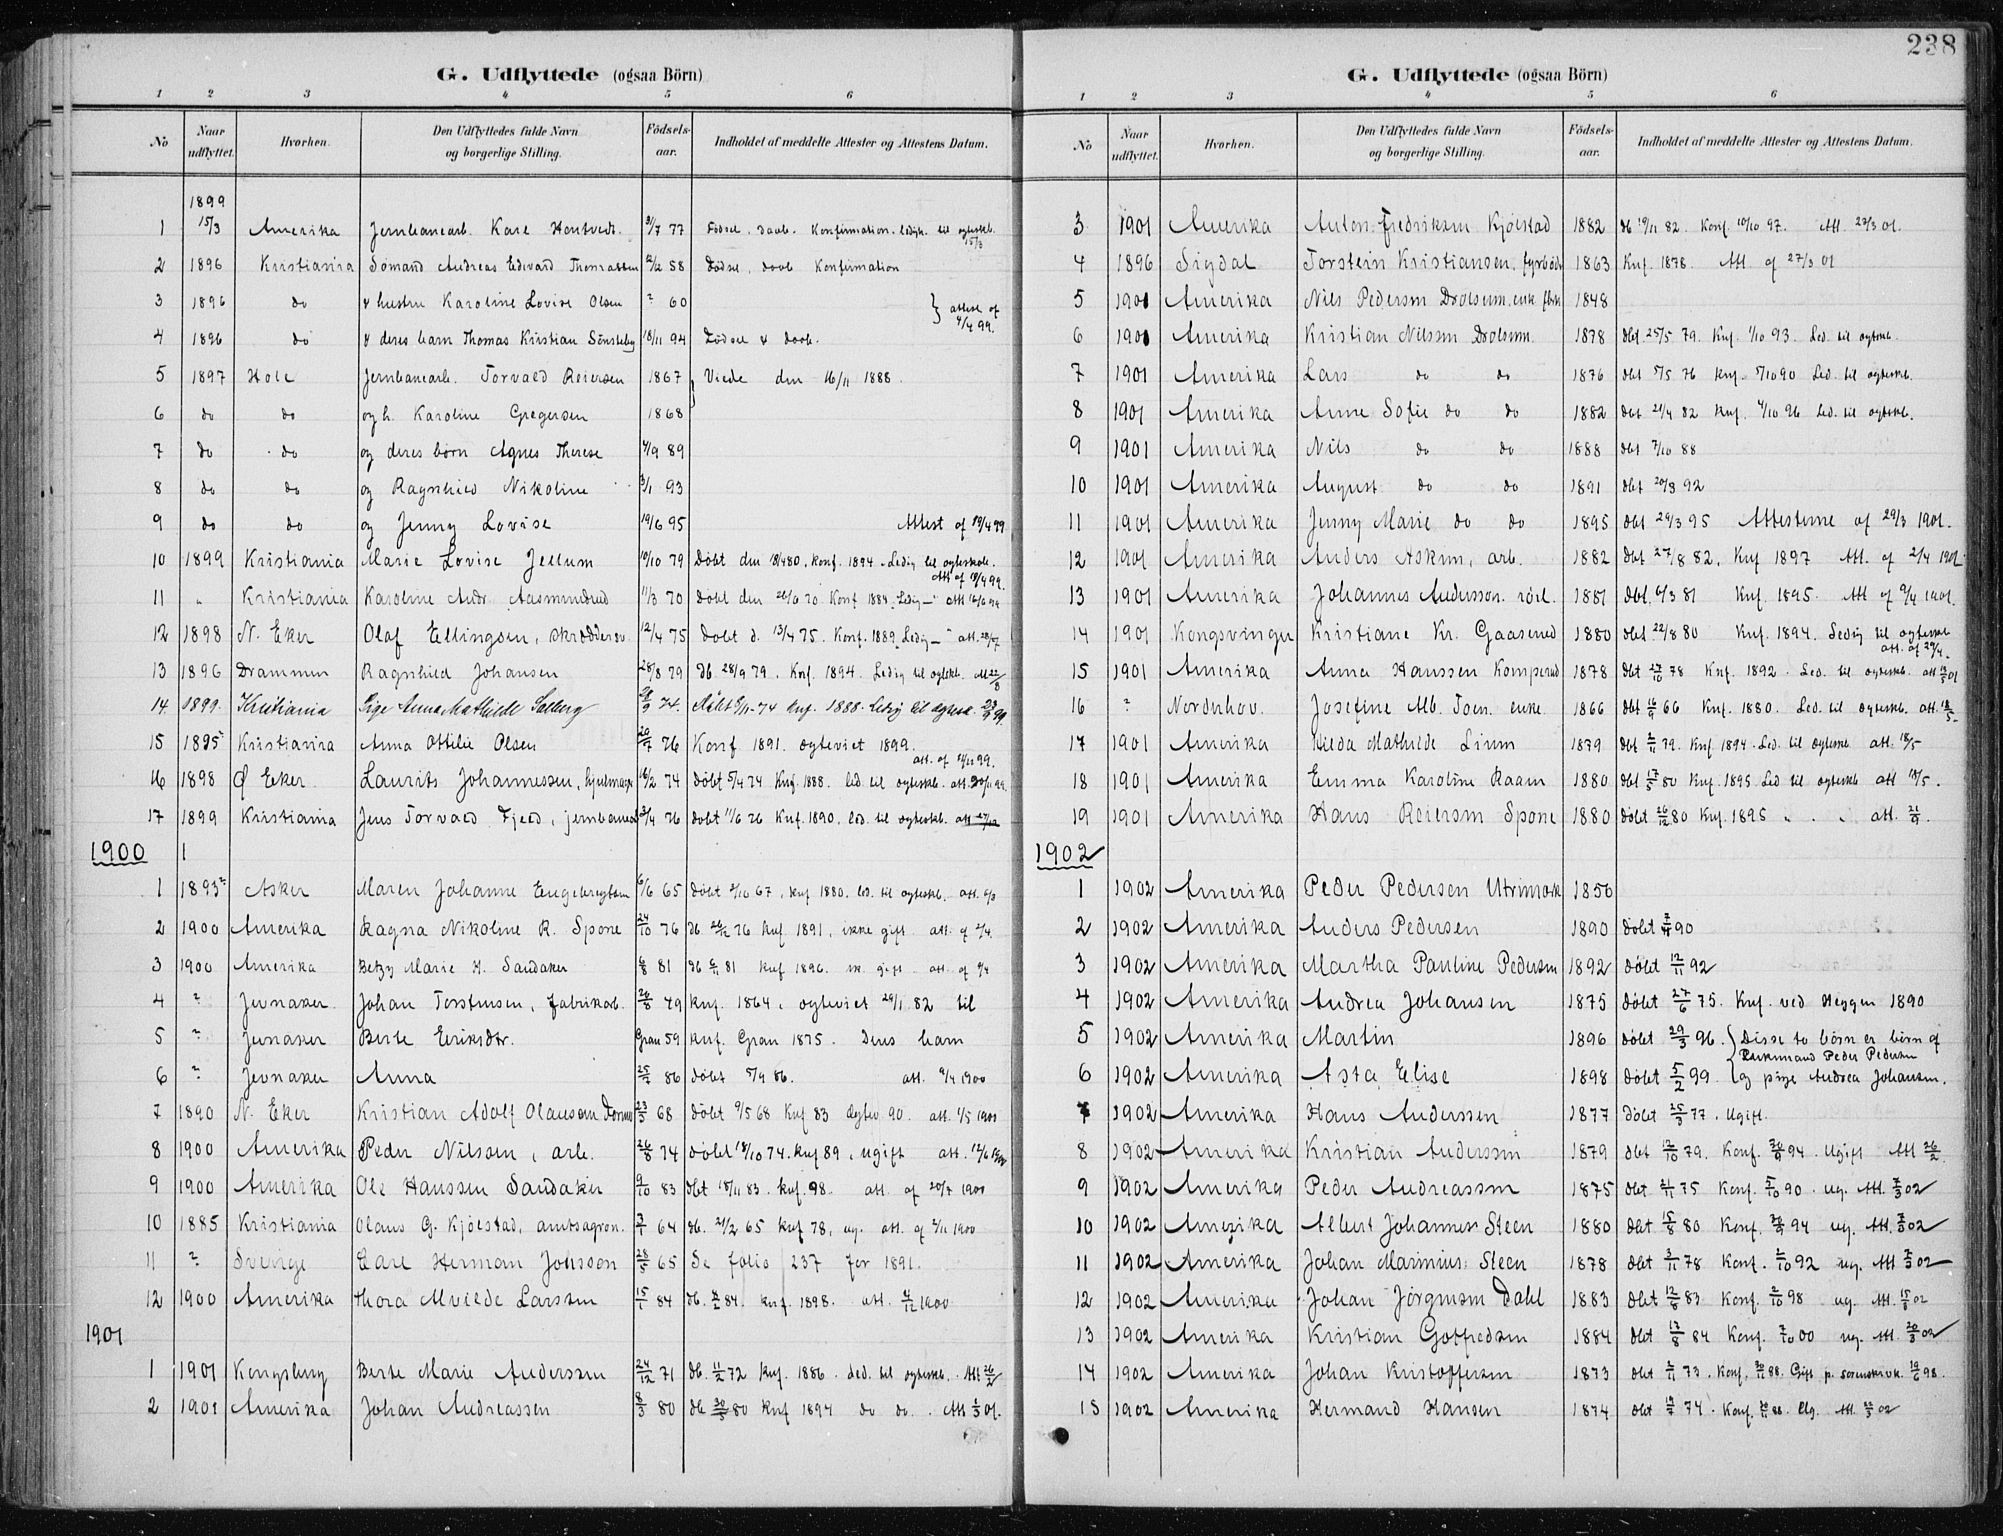 G. Udflyttede (ogsaa Börn)
1 2 3 4 5 6
No Naar udflyttet. Hvorhen. Den Udflyttedes fulde Navn og borgerlige Stilling. Födsels-aar. Indholdet af meddelte Attester og Attestens Datum.
1899
1 15/3 Amerika Jernbanearb. Karl 3/7 77 Födsel, daab, Konfirmation, ledig til ægtesk. 15/3
2 1896 Kristiania Sömand Andreas Edvard Thomassen 2/2 58 Födsel, daab Konfirmation
3 1896 do & hustru Karoline Lovise Olsen ? 60 } attest af 4/4 99.
4 1896 do & deres barn Thomas Kristian Sönsteby 18/11 94 Födsel & daab.
5 1897 Hole Jernbanearb. Torvald Reiersen 1867 } Viede den 16/11 1888.
6 do do og h. Karoline Gregersen 1868
7 do do og deres börn Agnes Therese 4/9 89
8 do do og Ragnhild Nikoline 3/1 93
9 do do og Jenny Lovise 19/6 95 Attest af 19/4 99
10 1899 Kristiania Marie Lovise Jellum 10/10 79 Döbt den 18/4 80, Konf. 1894. Ledig til ægteskab. Att. af 19/4 99.
11 " Kristiania Karoline Andr. Aasmundrud 11/3 70 Döbt den 26/6 70 Konf 1884. Ledig —"
12 1898 N. Eker Olaf Ellingsen, skrædder 12/4 75 Döbt d. 13/4 75. Konf. 1889. Ledig —" att. 28/7
13 1896 Drammen Ragnhild Johansen 28/8 79 Db. 28/9 79. Knf. 1894. Ledig til ægtesk. Att 22/8
14 1899 Kristiania Pige Anna Mathilde Solberg 74. Döbt 8/11-74 Knf. 1888. Ledig til ægtesk. 99.
15 1895 Kristiania Anna Ottilie Olsen 20/7 76 Konf 1891. ægteviet 1899. att. af 99.
16 1898 Ø Eker Laurits Johannessen, hjulmager 18/2 74 döbt 5/4 74 Knf. 1888. led. til ægteskb. att. 20/11 99.
17 1899 Kristiania Jens Torvald Fjeld, jernbanearb 3/4 76 döbt 11/6 76 Knf. 1890. led. til ægteskb. att
1900
1 1893? Asker Maren Johanne Engebregtsen 6/6 65 Döbt 67, Knf 1880. led. til ægteskb. att.
2 1900 Amerika Ragna Nikoline R. Spone 24/10 76 Db 26/12 76 Knf 1891, ikke gift att. af 2/4.
3 1900 Amerika Betzy Marie H. Sandaker 6/8 81 Db 6/11 81 Knf 1896. ik. gift att. af 9/4
4 ? Jevnaker Johan Torstensen, fabrikarb. 26/8 49 Knf. 1864. ægteviet 29/11 82 til
5 ? Jevnaker Berte Eriksdtr. Gran 59 Knf. Gran 1875. Deres barn
6 ? Jevnaker Anna 25/2 86 Döbt 5/9 86. att. 9/4 1900
7 1890 N. Eker Kristian Adolf Olausen 23/3 68 Döbt 9/5 68 Knf 83 Ægtev. 90. att. 1/5 1900
8 1900 Amerika Peder Nilsen, arb. 26/8 74 Döbt 18/10 74. Knf 89, ugift att. 12/6 1900
9 1900 Amerika Ole Hanssen Sandaker 9/10 83 Dbt 18/11 83. Knf. 98. att. af 20/7 1900
10 1885 Kristiania Olaus G. Kjölstad, amtsagron. 7/1 64 Db. 21/2 65 Knf 78, ug. att. af 2/11 1900
11 ? Sverige Carl Herman Jonsson 28/5 65 Se folio 237 for 1891.
12 1900 Amerika Thora Alvilde Larssen 15/1 84 Db. 84. Knf. 1898. att. 4/12 1900
1901
1 1901 Kongsberg Berte Marie Anderssen 24/12 71 Db. 11/2 72 Knf. 1886. Led. til ægteskb. Att 26/2
2 1901 Amerika Johan Andreassen 8/3 80 Db 30/5 80 Knf 1894 do do. Att 1/3 01.
238
G. Udflyttede (ogsaa Börn)
1 2 3 4 5 6
No Naar udflyttet. Hvorhen. Den Udflyttedes fulde Navn og borgerlige Stilling. Födsels-aar. Indholdet af meddelte Attester og Attestens Datum.
3 1901 Amerika Anton Fredriksen Kjölstad 1882 Db 19/11 82. Konf. 10/10 97. Att. 27/3 01.
4 1896 Sigdal Torstein Kristiansen, fyrböder 1863 Knf. 1878. Att. af 27/3 01
5 1901 Amerika Nils Pedersen Drolsum, enk. fbrk 1848
6 1901 Amerika Kristian Nilsen Drolsum 1878 dbt. 25/5 79. Knf. 1/10 93. Led. til ægteskb.
7 1901 Amerika Lars do do 1876 dbt 7/5 76 Knf. 5/10 90 Led. til ægteskb.
8 1901 Amerika Anne Sofie do do 1882 dbt 21/4 82 Knf. 4/10 96 Led. til ægteskb.
9 1901 Amerika Nils do do 1888 dbt 7/10 88
10 1901 Amerika August do do 1891 dbt 20/3 92
11 1901 Amerika Jenny Marie do do 1895 dbt 24/3 95 Attesterne af 29/3 1901.
12 1901 Amerika Anders Askim, arb. 1882 dbt 27/8 82, Knf 1897 Att. af 2/4 1901.
13 1901 Amerika Johannes Andersson. 1881 Dbt. 6/3 81 Knf. 1895. Att af 9/4 1901.
14 1901 Kongsvinger Kristiane Kr. Gaaserud 1880 dbt 22/8 80 Knf. 1894. Ledig til ægteskb att. af 29/4.
15 1901 Amerika Anna Hanssen Komperud 1878 Dbt 27/10 78 Knf. 1892. Led. til ægteskb. att 13/5 01
16 ? Norderhov. Josefine Alb. Toen. enke. 1866 dbt 16/9 66 Knf. 1880. Led. til ægteskb. att. 18/5
17 1901 Amerika Hilda Mathilde Lium 1879 dbt 2/11 79. Knf. 1894. Led. til ægteskb att. 18/5
18 1901 Amerika Emma Karoline Raaen 1880 dbt 17/5 80 Knf. 1895 Led til ægteskb att 18/5.
19 1901 Amerika Hans Reiersen Spone 1880 Döbt 26/12 80 Knf. 1895 " " " att. 21/9
1902
1 1902 Amerika Peder Pedersen Utrimark 1856
2 1902 Amerika Anders Pedersen 1890 döbt 90
3 1902 Amerika Martha Pauline Pedersen 1892 döbt 12/11 92
4 1902 Amerika Andrea Johansen 1875 döbt 27/6 75. Knf. ved Heggen 1890
5 1902 Amerika Martin 1896 döbt 29/3 96. { Disse to börn er börn af
Enkemand Peder Pedersen
6 1902 Amerika Asta Elise 1898 Döbt 5/2 99. og pige Andrea Johansen.
7 1902 Amerika Hans Anderssen 1877 döbt 25/3 77. Ugift.
8 1902 Amerika Kristian Anderssen 1879 dbt 12/10 79. Konf. 94. Ugift Att 26/2.
9 1902 Amerika Peder Andreassen 1875 dbt. 21/11 75 Konf. 5/10 90. ug. Att. 7/3 02
10 1902 Amerika Albert Johannes Steen 1880 dbt 15/8 80 Konf. 94 ug. Att. 7/3 02
11 1902 Amerika Johan Marinius Steen 1878 dbt 3/11 78 Konf. 2/10 92 ug. Att 7/3 02
12 1902 Amerika Johan Jörgensen Dahl 1883 dbt 12/8 83 Konf. 2/10 98 ug. Att. 15/3 02
13 1902 Amerika Kristian Gotfredsen 1884 dbt 17/8 84 Konf. 7/10 00 ug. Att. 20/3 02
14 1902 Amerika Johan Kristoffersen 1873 dbt 2/11 73. Konf. 88. Gift p. sorenskrivk. 98.
15 1902 Amerika Hermand Hansen 1874 dbt 74. Konf. 88. Ug. Att. 22/3 02